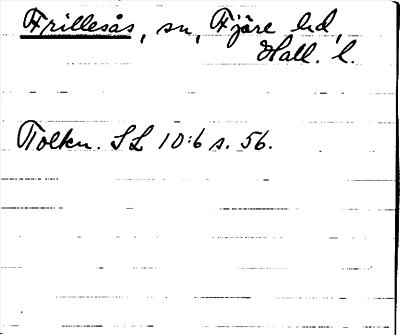 Frillesås, sn, Fjäre hd,
Hall. l.
Tolkn. SL 10:6 s. 56.